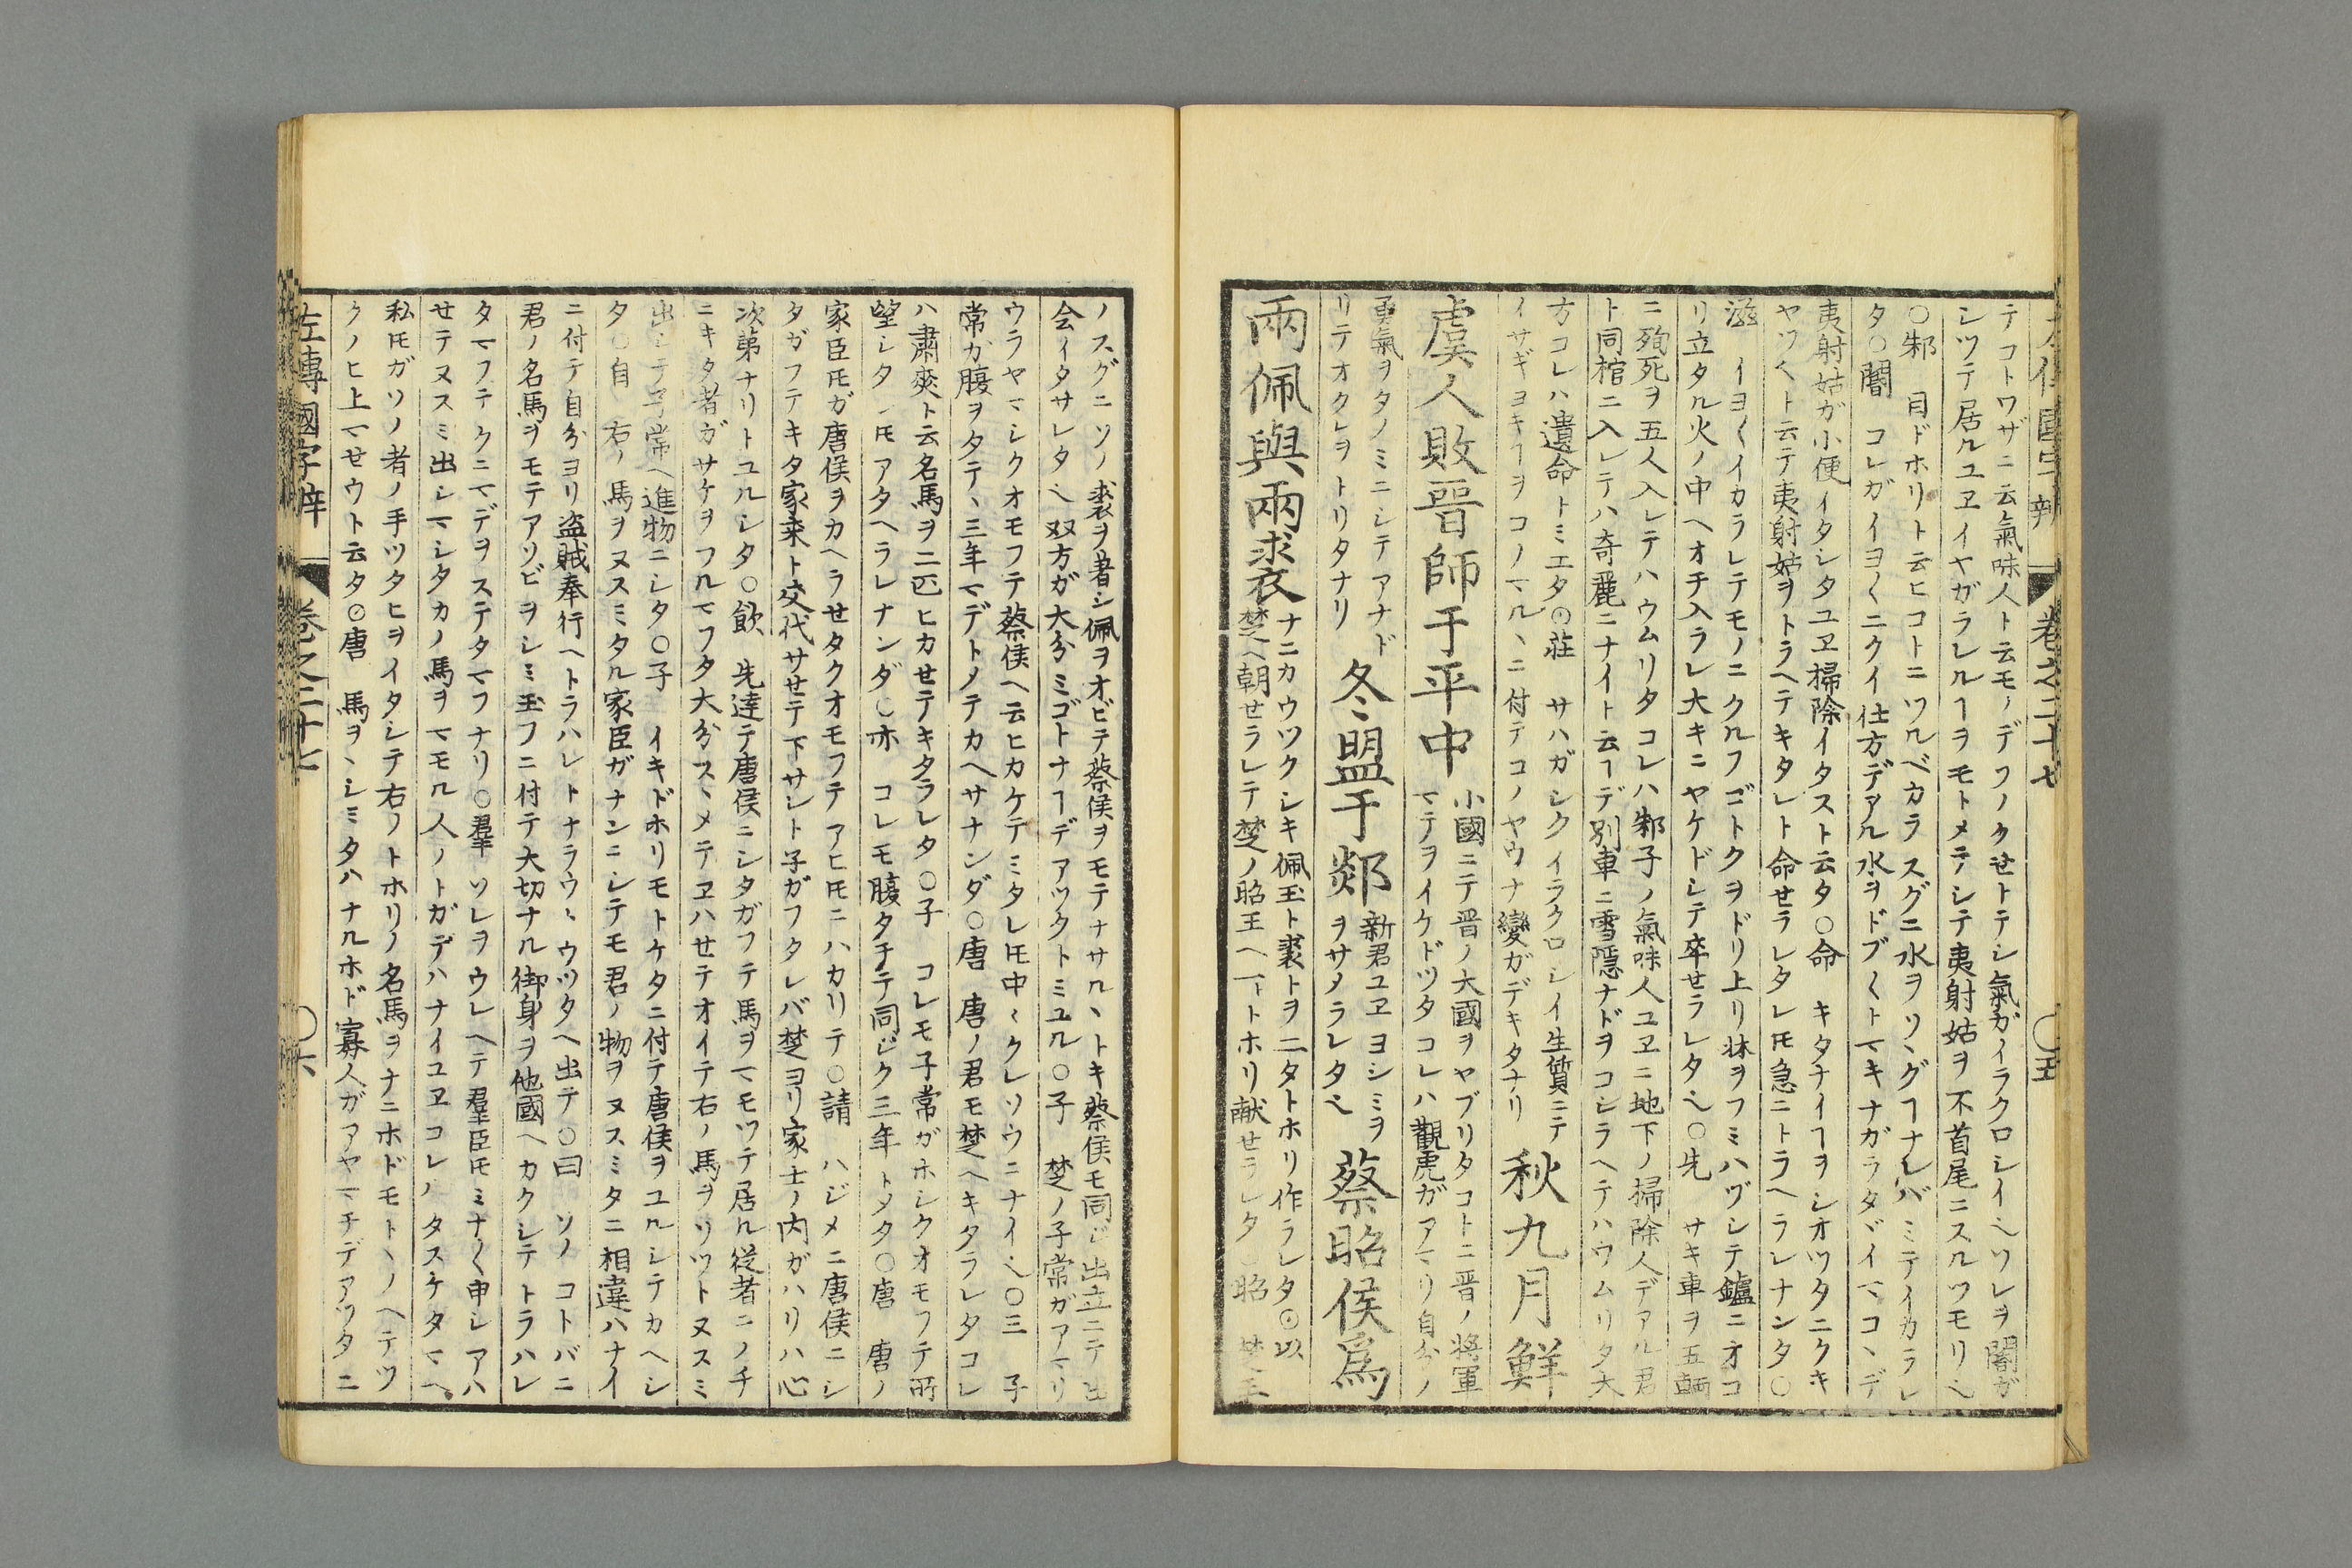 左傳國字辨 卷之二十七 ○五
テコトワザニ云氣味人ト云モノデフノクせトテシ氣ガイラクロシイ乀ソレヲ闇ガ
シツテ居ルユヱイヤガラルルヿヲモトメテシテ夷射姑ヲ不首尾ニスルツモリ乀
○邾 目ドホリト云ヒコトニワルベカラスグニ水ヲソヽグヿナレバミテイカラレ
タ○闇 コレガイヨ〱ニクイ仕方デアル水ヲドブ〱トマキナガラタヾイマコヽデ
夷射姑ガ小便イタシタユヱ掃除イタスト云タ○命 キタナイヿヲシオツタニクキ
ヤツ〱ト云テ夷射姑ヲトラヘテキタレト命せラレタレ𪜈急ニトラヘラレナンタ○
滋 イヨ〱イカラレテモノニクルフゴトクヲドリ上リ牀ヲフミハヅシテ鑪ニオコ
リ立タル火ノ中ヘオチ入ラレ大キニヤケドシテ卒せラレタ乀○先 サキ車ヲ五輌
ニ殉死ヲ五人入レテハウムリタコレハ邾子ノ氣味人ユヱニ地下ノ掃除人デアル君
ト同棺ニ入レテハ奇麗ニナイト云ヿデ別車ニ雪隱ナドヲコシラヘテハウムリタ大
方コレハ遺命トミエタ○莊 サハガシクイラクロシイ生質ニテ
イサギヨキヿヲコノマルヽニ付テコノヤウナ變ガデキタナリ
秋九月鮮
虞人敗晉師于平中
小國ニテ晋ノ大國ヲヤブリタコトニ晋ノ將軍
マテヲイケドツタコレハ觀虎ガアマリ自分ノ
勇氣ヲタノミニシテアナド
リテオクレヲトリタナリ
冬盟于郯
新君ユヱヨシミヲ
ヲサメラレタ乀
蔡昭侯爲
兩佩與兩裘
ナニカウツクシキ佩玉ト裘トヲ二タトホリ作ラレタ○以
楚ヘ朝せラレテ楚ノ昭王ヘ一トホリ献せラレタ○昭 楚王
ノスグニソノ裘ヲ著シ佩ヲオビテ蔡侯ヲモテナサルヽトキ蔡侯モ同ジ出立ニテ出
会イタサレタ乀双方ガ大分ミゴトナヿデアツタトミユル○子 楚ノ子常ガアマリ
ウラヤマシクオモフテ蔡侯ヘ云ヒカケテミタレ𪜈中〻クレソウニナイ乀○三 子
常ガ腹ヲタテヽ三年マデトメテカヘサナンダ○唐 唐ノ君モ楚ヘキタラレタコレ
ハ肅爽ト云名馬ヲ二匹ヒカせテキタラレタ○子 コレモ子常ガホシクオモフテ所
望シタレ𪜈アタヘラレナンダ○亦 コレモ腹タチテ同ジク三年トメタ○唐 唐ノ
家臣𪜈ガ唐侯ヲカヘラせタクオモフテアヒ𪜈ニハカリテ○請 ハジメニ唐侯ニシ
タガフテキタ家来ト交代サせテ下サレト子ガフタレバ楚ヨリ家士ノ内ガハリハ心
次第ナリトユルシタ○飲 先達テ唐侯ニシタガフテ馬ヲマモツテ居ル従者ニノチ
ニキタ者ガサケヲフルマフタ大分スヽメテヱハせテオイテ右ノ馬ヲソツトヌスミ
出シテ子常ヘ進物ニシタ○子 イキドホリモトケタニ付テ唐侯ヲユルシテカヘシ
タ○自 右ノ馬ヲヌスミタル家臣ガナンニシテモ君ノ物ヲヌスミタニ相違ハナイ
ニ付テ自分ヨリ盗賊奉行ヘトラハレトナラウヽウツタヘ出テ○曰 ソノコトバニ
君ノ名馬ヲモテアソビヲシミ玉フニ付テ大切ナル御身ヲ他國ヘカクシテトラハレ
タマフテクニマデヲステタマフナリ○羣 ソレヲウレヘテ羣臣𪜈ミナ〱申シアハ
せテヌスミ出シマシタカノ馬ヲマモル人ノトガデハナイユヱコレノタスケタマヘ
私𪜈ガソノ者ノ手ツタヒヲイタシテ右ノトホリノ名馬ヲナニホドモトヽノヘテツ
クノヒ上マせウト云タ○唐 馬ヲヽシミタハナルホド寡人ガアヤマチデアツタニ
左傳國字辨 卷之二十七 ○六